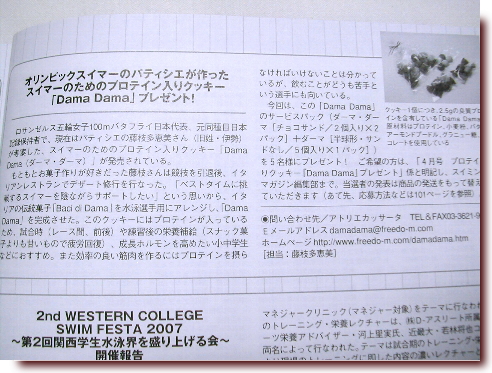 オリンピックスイマーのパティシエが作った
スイマーのためのプロテイン入りクッキー
「Dama Dama」プレゼント!
ロサンゼルス五輪女子100mバタフライ日本代表、元同種目日本
記録保持者で、現在はパティシエの藤枝多恵美さん(旧姓・伊勢)
が考案した、スイマーのためのプロテイン入りクッキー「Dama
Dama(ダーマ・ダーマ)」が発売されている。
もともとお菓子作りが好きだった藤枝さんは競技を引退後、イタ
リアンレストランでデザート修行を行なった。「ベストタイムに挑
戦するスイマーを陰ながらサポートしたい」という思いから、イタ
リアの伝統菓子「Baci di Dama」を水泳選手用にアレンジし、「Dama
Dama」を完成させた。このクッキーにはプロテインが入っている
ため、試合時(レース間、前後)や練習後の栄養補給(スナック菓
子よりも甘いもので疲労回復)、成長ホルモンを高めたい小中学生
などにおすすめ。また効率の良い筋肉を作るにはプロテインを摂ら
なければいけないことは分かって
いるが、飲むことがどうも苦手と
いう選手にも向いている。
今回は、この「Dama Dama」
のサービスパック(ダーマ・ダー
マ「チョコサンド/2個入り×2
パック]+ダーマ[半球形・サン
ドなし/5個入り×1パック])
を5名様にプレゼント! ご希望の方は、「4月号 プロテイ
ンクッキー『Dama Dama』プレゼント」係と明記し、スイミン
マガジン編集部まで。当選者の発表は商品の発送をもって替え
ていただきます(あて先、応募方法などは101ページを参照)。
クッキー1個につき、2.5gの良質プロ
テインを含有している「Dama Dama
原材料はプロテイン、小麦粉、バタ
アーモンドプードル、グラニュー糖、
コレートを使用している
●問い合わせ先/アトリエカッサータ TEL&FAX03-3621-9
Eメールアドレス damadama@freedo-m.com
ホームページ http://www.freedo-m.com/damadama.htm
[担当:藤枝多恵美]
2nd WESTERN COLLEGE
SWIM FESTA 2007
~第2回関西学生水泳界を盛り上げる会~
開催報告
マネジャークリニック(マネジャー対象)をテーマに行なわれ
のトレーニング・栄養レクチャーは、㈱D-アスリート所属
ーツ栄養アドバイザー・河上里実氏、近畿大・若林将也コ
両名によって行なわれた。テーマは試合期のトレーニング・